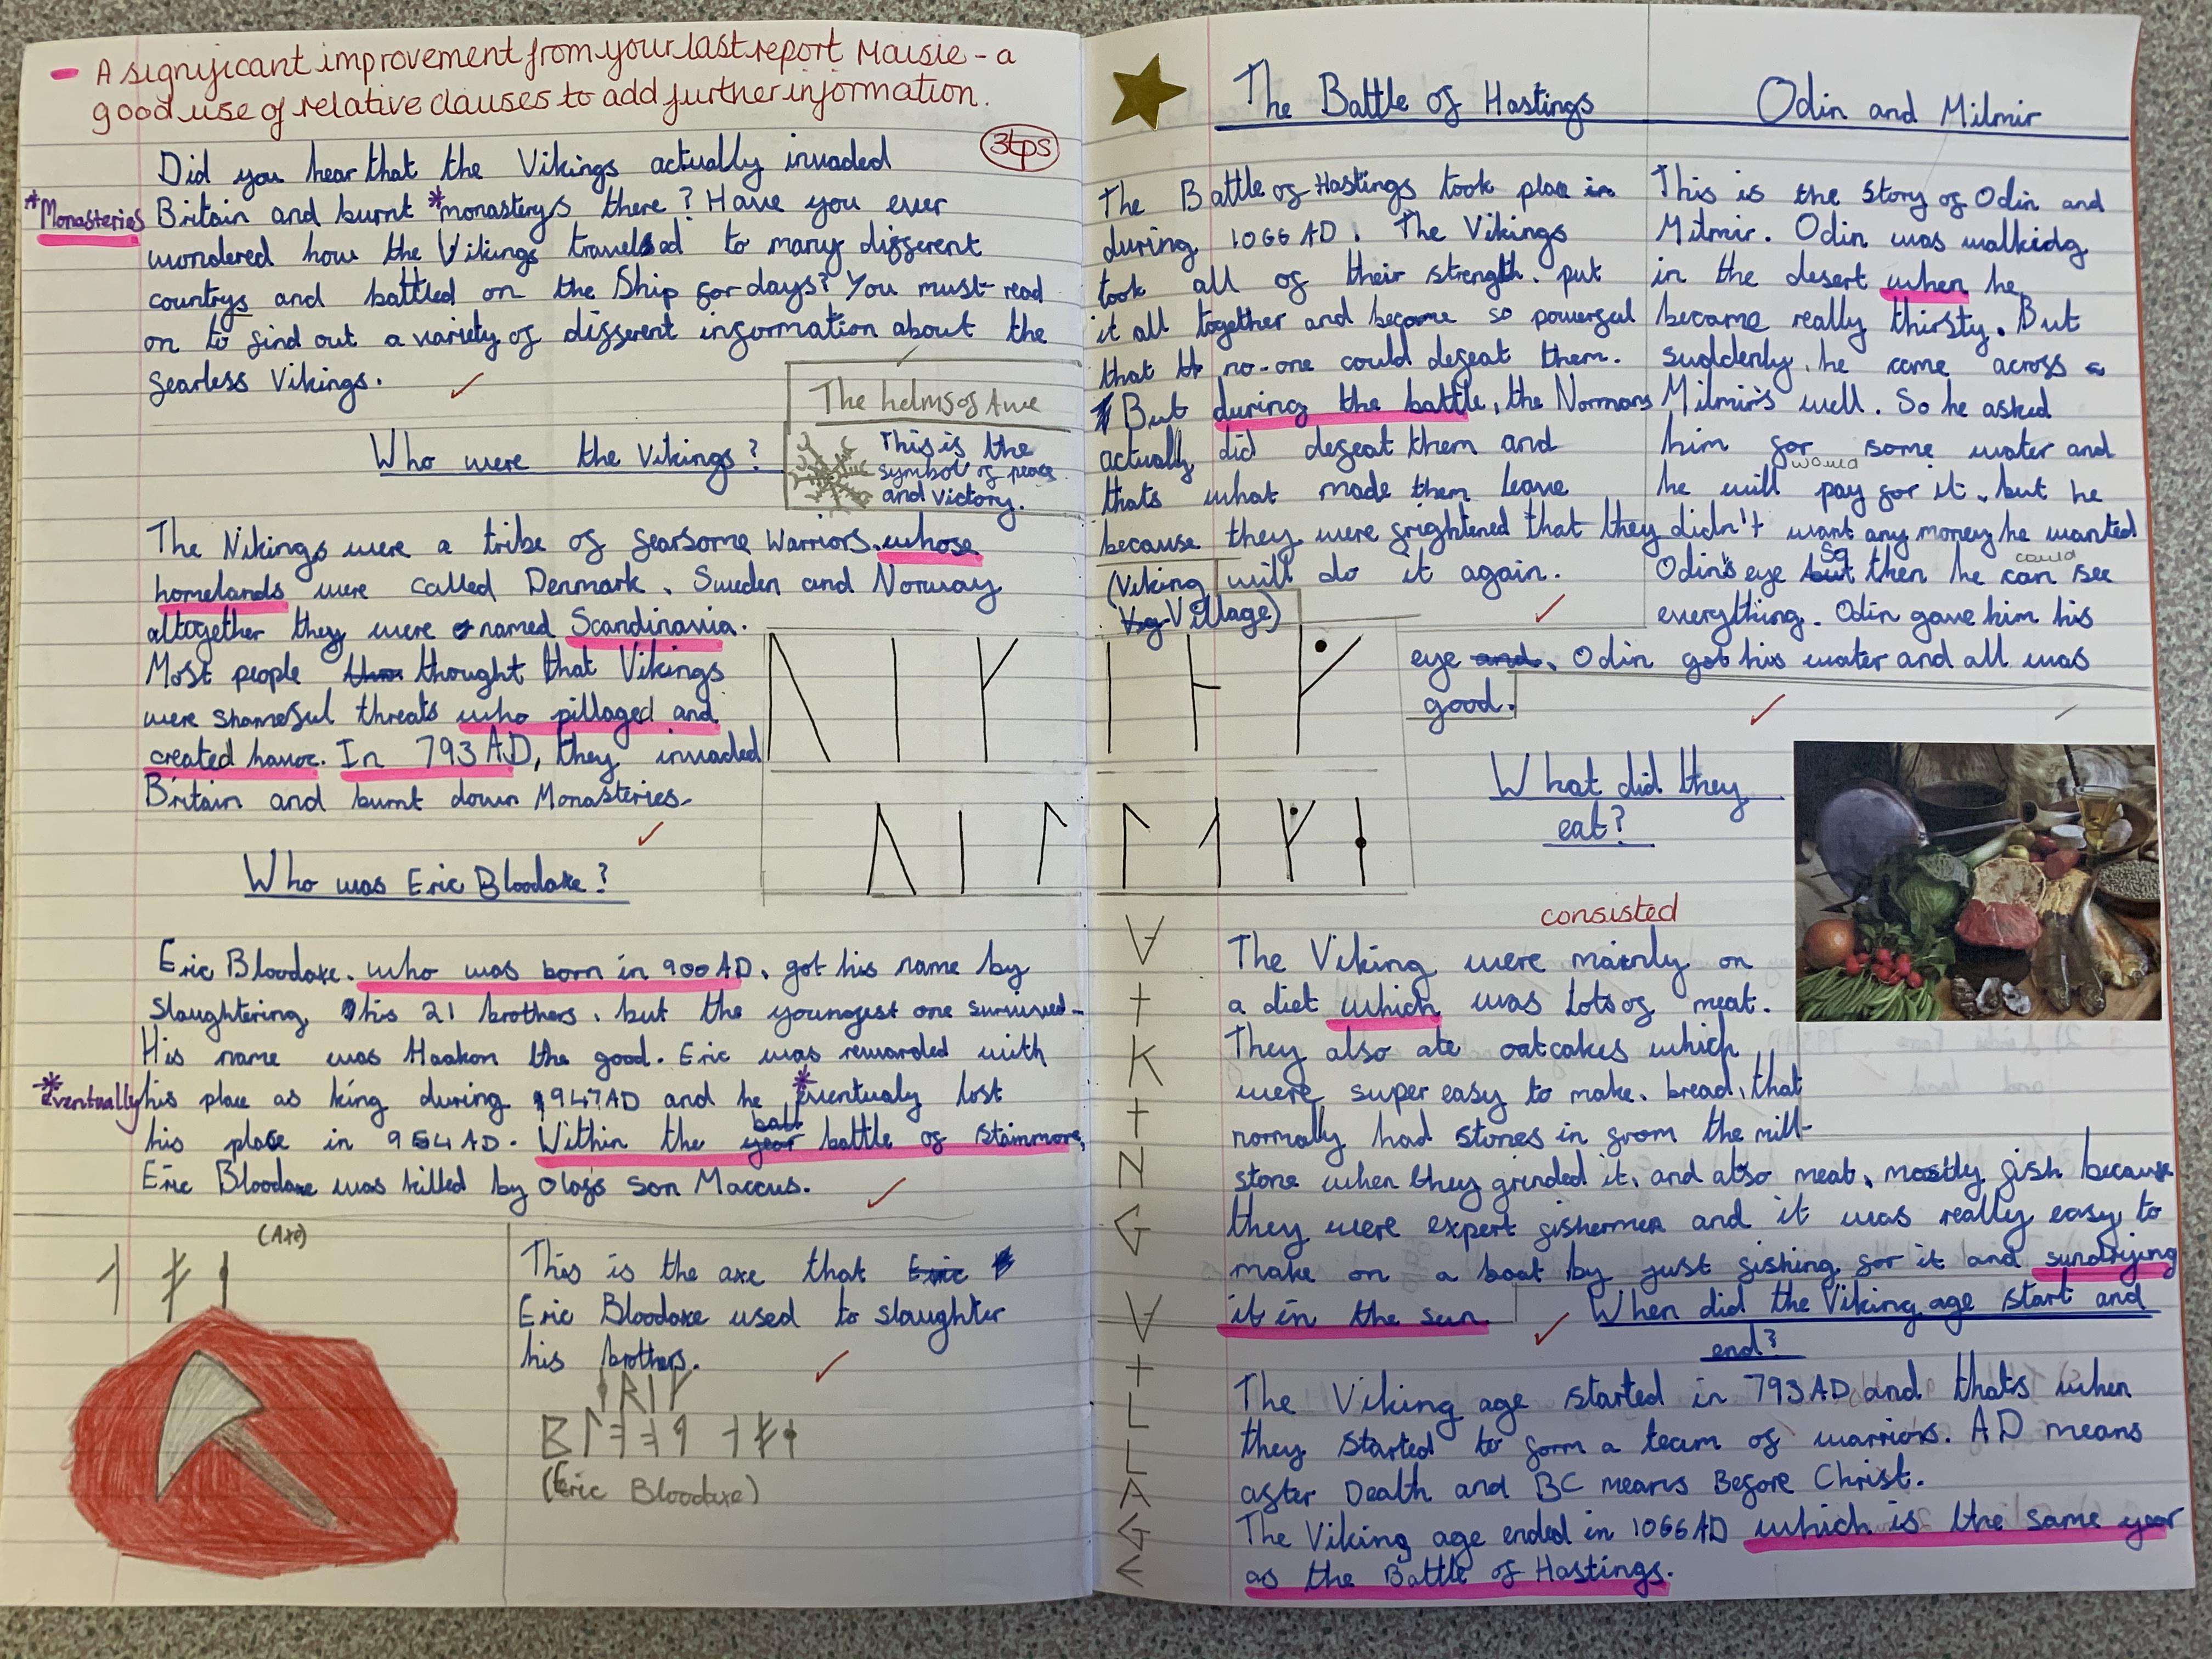 - A significant improvement from your last report Maisie - a
good use of relative clauses to add further information.
3tps
Did you hear that the Vikings actually invaded
*Monasteries
Britain and burnt *monasterys there? Have you ever
wondered how the Vikings travelled to many different
countrys and battled on the Ship for days? You must read
on to find out a variety of different information about the
fearless Vikings.
The helms of Awe
This is the
symbol of peace
and victory.
Who were the Vikings?
The Vikings were a tribe of fearsome Warriors, whose
homelands were called Denmark, Sweden and Norway
altogether they were named Scandinavia.
Most people thought that Vikings
were shameful threats who pillaged and
created havoc. In 793 AD, they invaded
Britain and burnt down Monasteries.
Who was Eric Bloodaxe?
Eric Bloodaxe, who was born in 900 AD, got his name by
Slaughtering his 21 brothers, but the youngest one survived.
His name was Haakon the good. Eric was rewarded with
*eventually
his place as king during 947 AD and he *eventualy lost
his place in 954 AD. Within the year battle of Stainmore,
Eric Bloodaxe was killed by Olafs son Maccus.
(Axe)
This is the axe that Eric
Eric Bloodaxe used to slaughter
his brothers.
(Eric Bloodaxe)
The Battle of Hastings
The Battle of Hastings took place in
during 1066 AD. The Vikings
took all of their strength, put
it all together and become so powerful
that no-one could defeat them.
But during the battle, the Normans
actually did defeat them and
thats what made them leave
because they were frightened that they
will do it again.
(Viking
Village)
Odin and Milmir
This is the Story of Odin and
Milmir. Odin was walkidg
in the desert when he
became really thirsty. But
suddenly, he came across a
Milmir's well. So he asked
him for some water and
would
he will pay for it, but he
didn't want any money he wanted
So could
Odin's eye but then he can see
everything. Odin gave him his
eye and, Odin got his water and all was
good.
What did they
eat?
consisted
The Viking were mainly on
a diet which was Lots of meat.
They also ate oatcakes which
were super easy to make, bread, that
normally had stones in from the mill-
stone when they grinded it, and also meat, mostly fish because
they were expert fishermen and it was really easy to
make on a boat by just fishing for it and sundrijing
it in the sun
When did the Viking age start and
end?
The Viking age started in 793 AD and thats when
they started to form a team of warriors. AD means
after Death and BC means Before Christ.
The Viking age ended in 1066 AD which is the same year
as the Battle of Hastings.